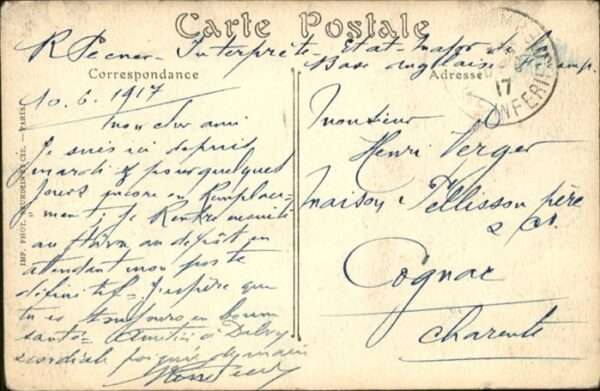 Carte Postale
R Pecner - Interprète - Etat-Major de
Base anglaise
Correspondance
Adresse
17
10.6.1917
mon cher ami
Je suis ici depuis
mardi et pour quelques
jours encore en Remplace-
ment; je Rentre ensuite
au au dépôt en
attendant mon poste
définitif - J'espère que
tu es toujours en bonne
santé - Amitiés à
cordiale poignée de main
Monsieur
Henri Verger
Maison Pellisson père
& Co.
Cognac
Charente
IMP. PHOT. NEURDEIN ET CIE. - PARIS